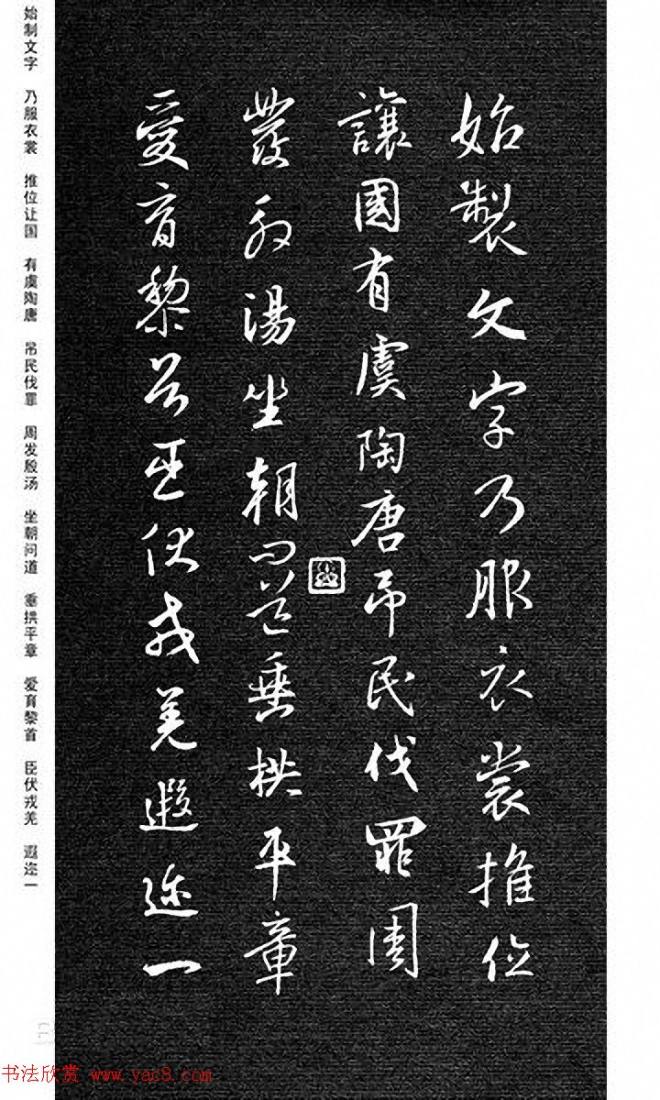 始製文字乃服衣裳推位
讓國有虞陶唐吊民伐罪周
發殷湯坐朝問道垂拱平章
愛育黎首臣伏戎羌遐迩一
始制文字 乃服衣裳 推位让国 有虞陶唐 吊民伐罪 周发殷汤 坐朝问道 垂拱平章 爱育黎首 臣伏戎羌 遐迩一
书法欣赏 www.yac8.com